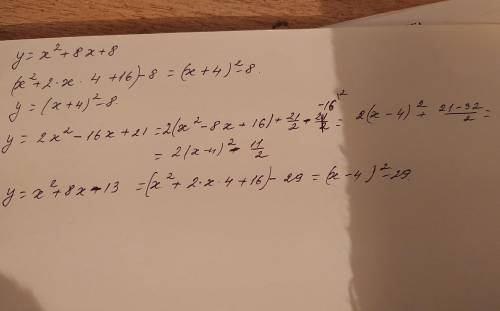 y = x² + 8x + 8
(x² + 2·x·4 + 16) - 8 = (x + 4)² - 8.
y = (x + 4)² - 8.
y = 2x² - 16x + 21 = 2(x² - 8x + 16) + 21/2 - 16 = 2(x - 4)² + 21 - 32/2 =
= 2(x - 4)² - 11/2
y = x² + 8x - 13 = (x² + 2·x·4 + 16) - 29 = (x - 4)² - 29.